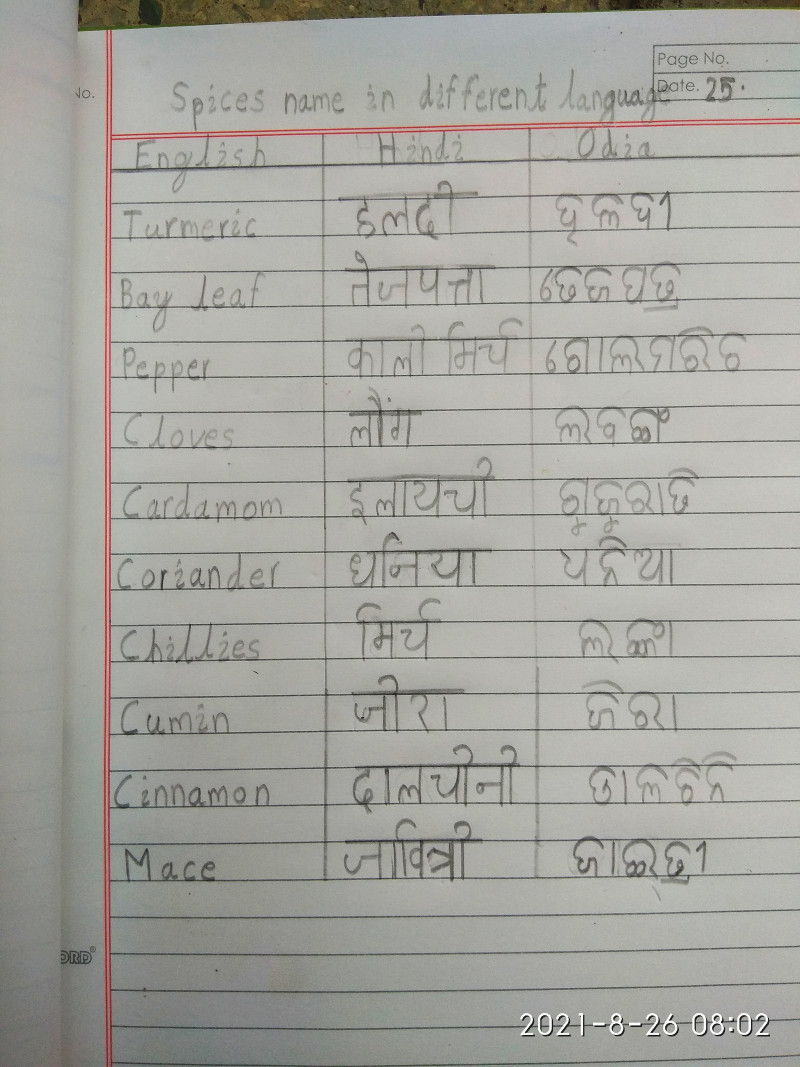 No.
Page No.
Date. 25.
Spices name in different language
English Hindi Odia
Turmeric हलदी ହଳଦୀ
Bay leaf तेजपत्ता ତେଜପତ୍ର
Pepper काली मिर्च ଗୋଲମରିଚ
Cloves लौंग ଲବଙ୍ଗ
Cardamom इलायची ଗୁଜୁରାତି
Coriander धनिया ଧନିଆ
Chillies मिर्च ଲଙ୍କା
Cumin जीरा ଜିରା
Cinnamon दालचीनी ଡାଳଚିନି
Mace जावित्री ଜାଇତ୍ରୀ
ORD®
2021-8-26 08:02